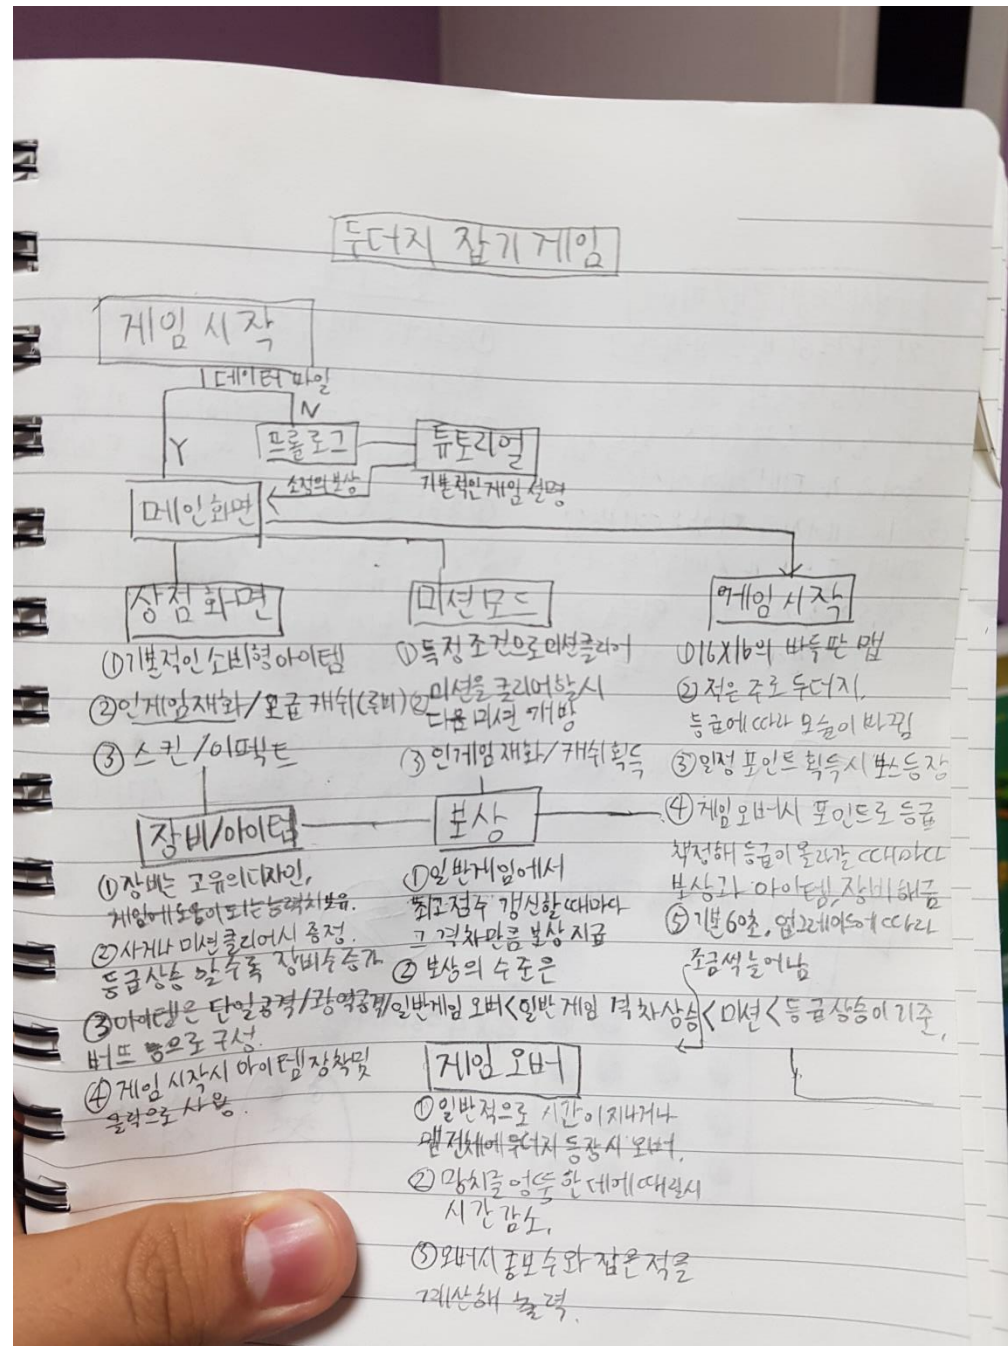 두더지 잡기 게임
게임 시작
데이터 파일
Y
N
프롤로그
튜토리얼
소정의 보상
기본적인 게임 설명
메인화면
상점화면
①기본적인 소비형아이템
②인게임재화/ 캐쉬(루비)
③ 스킨/이펙트
미션모드
①특정조건으로미션클리어
②미션을 클리어할시
다음 미션 개방
③ 인게임재화/캐쉬획득
게임시작
①16X16의 바둑판 맵
② 적은 주로 두더지,
등급에따라 모습이 바뀜
③일정 포인트획득시 보스등장
④ 게임오버시 포인트로 등급
책정해 등급이올라갈때마다
보상과 아이템,장비해금
⑤ 기본60초, 업그레이드에따라
조금씩늘어남
장비/아이템
① 장비는 고유의디자인,
게임에도움이되는능력치보유.
②사거나 미션클리어시 증정.
등급상승 할수록 장비수증가
③아이템은 단일공격/광역공격/
버프 등으로 구성.
④ 게임시작시 아이템장착및
클릭으로 사용.
보상
①일반게임에서
최고점수 갱신할때마다
그 격차만큼 보상지급
② 보상의 수준은
일반게임 오버<일반게임 격차상승<미션<등급상승이 기준.
게임 오버
①일반적으로 시간이지나거나
맵전체에두더지 등장시 오버.
② 망치를 엉뚱한데에때릴시
시간감소.
③오버시 수와 잡은적을
계산해 출력.